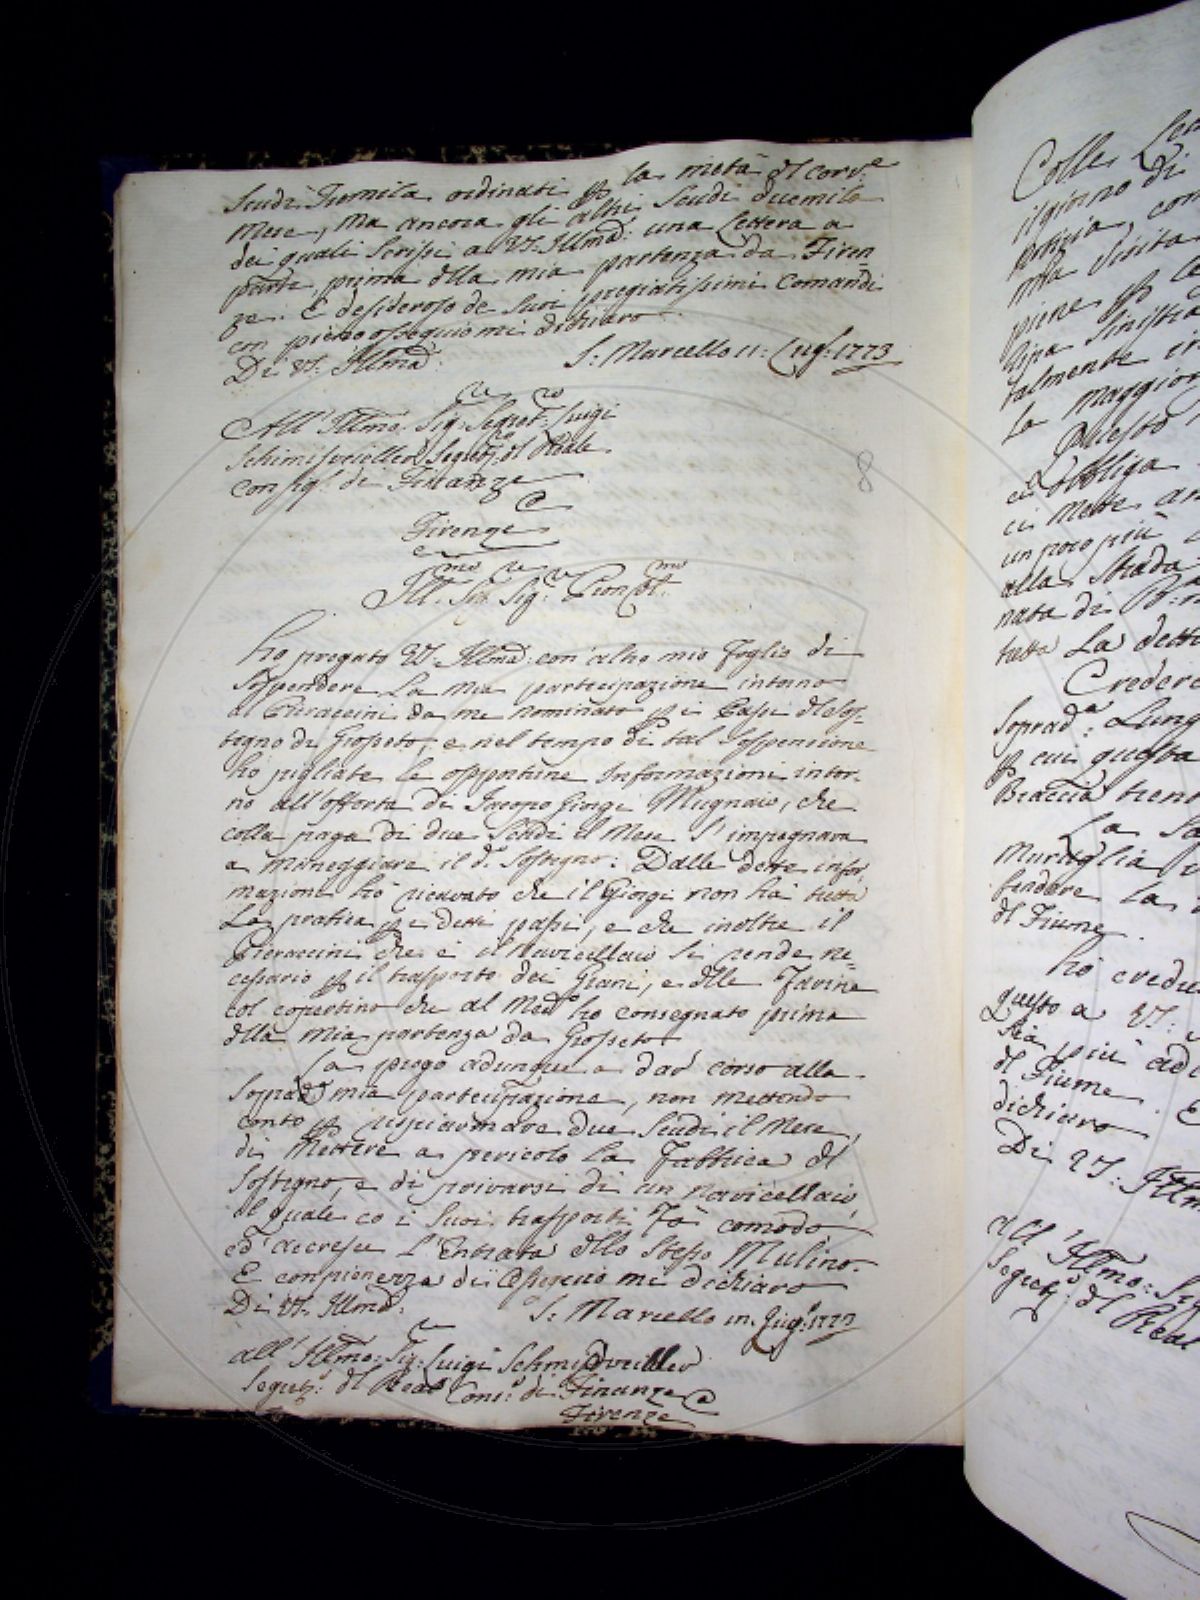 Scudi Tremila ordinati p la metà dl corr.e
Mese, Ma ancora gli altri Scudi duemila
dei quali Scrissi a VS. Illma: una Lettera a
parte prima dlla mia partenza da Firen
ze. E desideroso de Suoi pregiatissimi Comandi
con pieno ossequio mi dichiaro
Di VS. Illma: S: Marcello 11: Lug: 1773
All' Illmo. Sig: Segret: Luigi
Schmidveiller Segret: dl Reale
Consig: de Finanze
Firenze
Ill.mo Sig. Sig.
Ho pregato VS. Illma: con altro mio Foglio di
Sospendere La mia partecipazione intorno
al Pieraccini da me nominato p i Passi dl Sos-
tegno di Grosseto, e nel tempo di tal Sospensione
ho pigliate le opportune Informazioni intor-
no all'offerta di Jacopo Giorgi Mugnaio, che
colla paga di due Scudi il Mese S'impegnava
a Maneggiare il d.o Sostegno: Dalle dette infor-
mazioni hò ricavato che il Giorgi non hà tutta
La pratica p i detti passi, e che inoltre il
Pieraccini che è il Navicellaio si rende ne-
cessario p il trasporto dei Grani, e dlle Farine
col copertino che al Med.o ho consegnato prima
dlla Mia partenza da Grosseto
La prego adunque a dar corso alla
Soprad.a mia partecipazione, non mettendo
conto p risparmiare due Scudi il Mese,
di Mettere a pericolo La Fabbrica dl
Sostegno, e di privarsi di un navicellaio,
il quale co i Suoi trasporti Fà comodo,
ed' accresce L'Entrata dllo Stesso Mulino.
E con pienezza di Ossequio mi dichiaro
Di VS. Illma: S: Marcello 11. Lug: 1773
all' Illmo: Sig: Luigi Schmidveiller
Segret: dl Reale Cons: di Finanze
Firenze
8
Colle
il giorno di
notizia, con
mia Visita
piene p
Ripa Sinistra
talmente
La maggior
Questo
obbliga
ci Mette
un poco più
alla Strada
nata di
tutta La detta
Credere
Soprad.a Lung
p cui questa
Braccia
La
Muriglia
fondare La
dl Fiume.
Hò credu
questo a VS:
Sia più
dl Fiume. E
dichiaro
Di VS: Illm
All' Illmo: Sig
Segret: dl Real